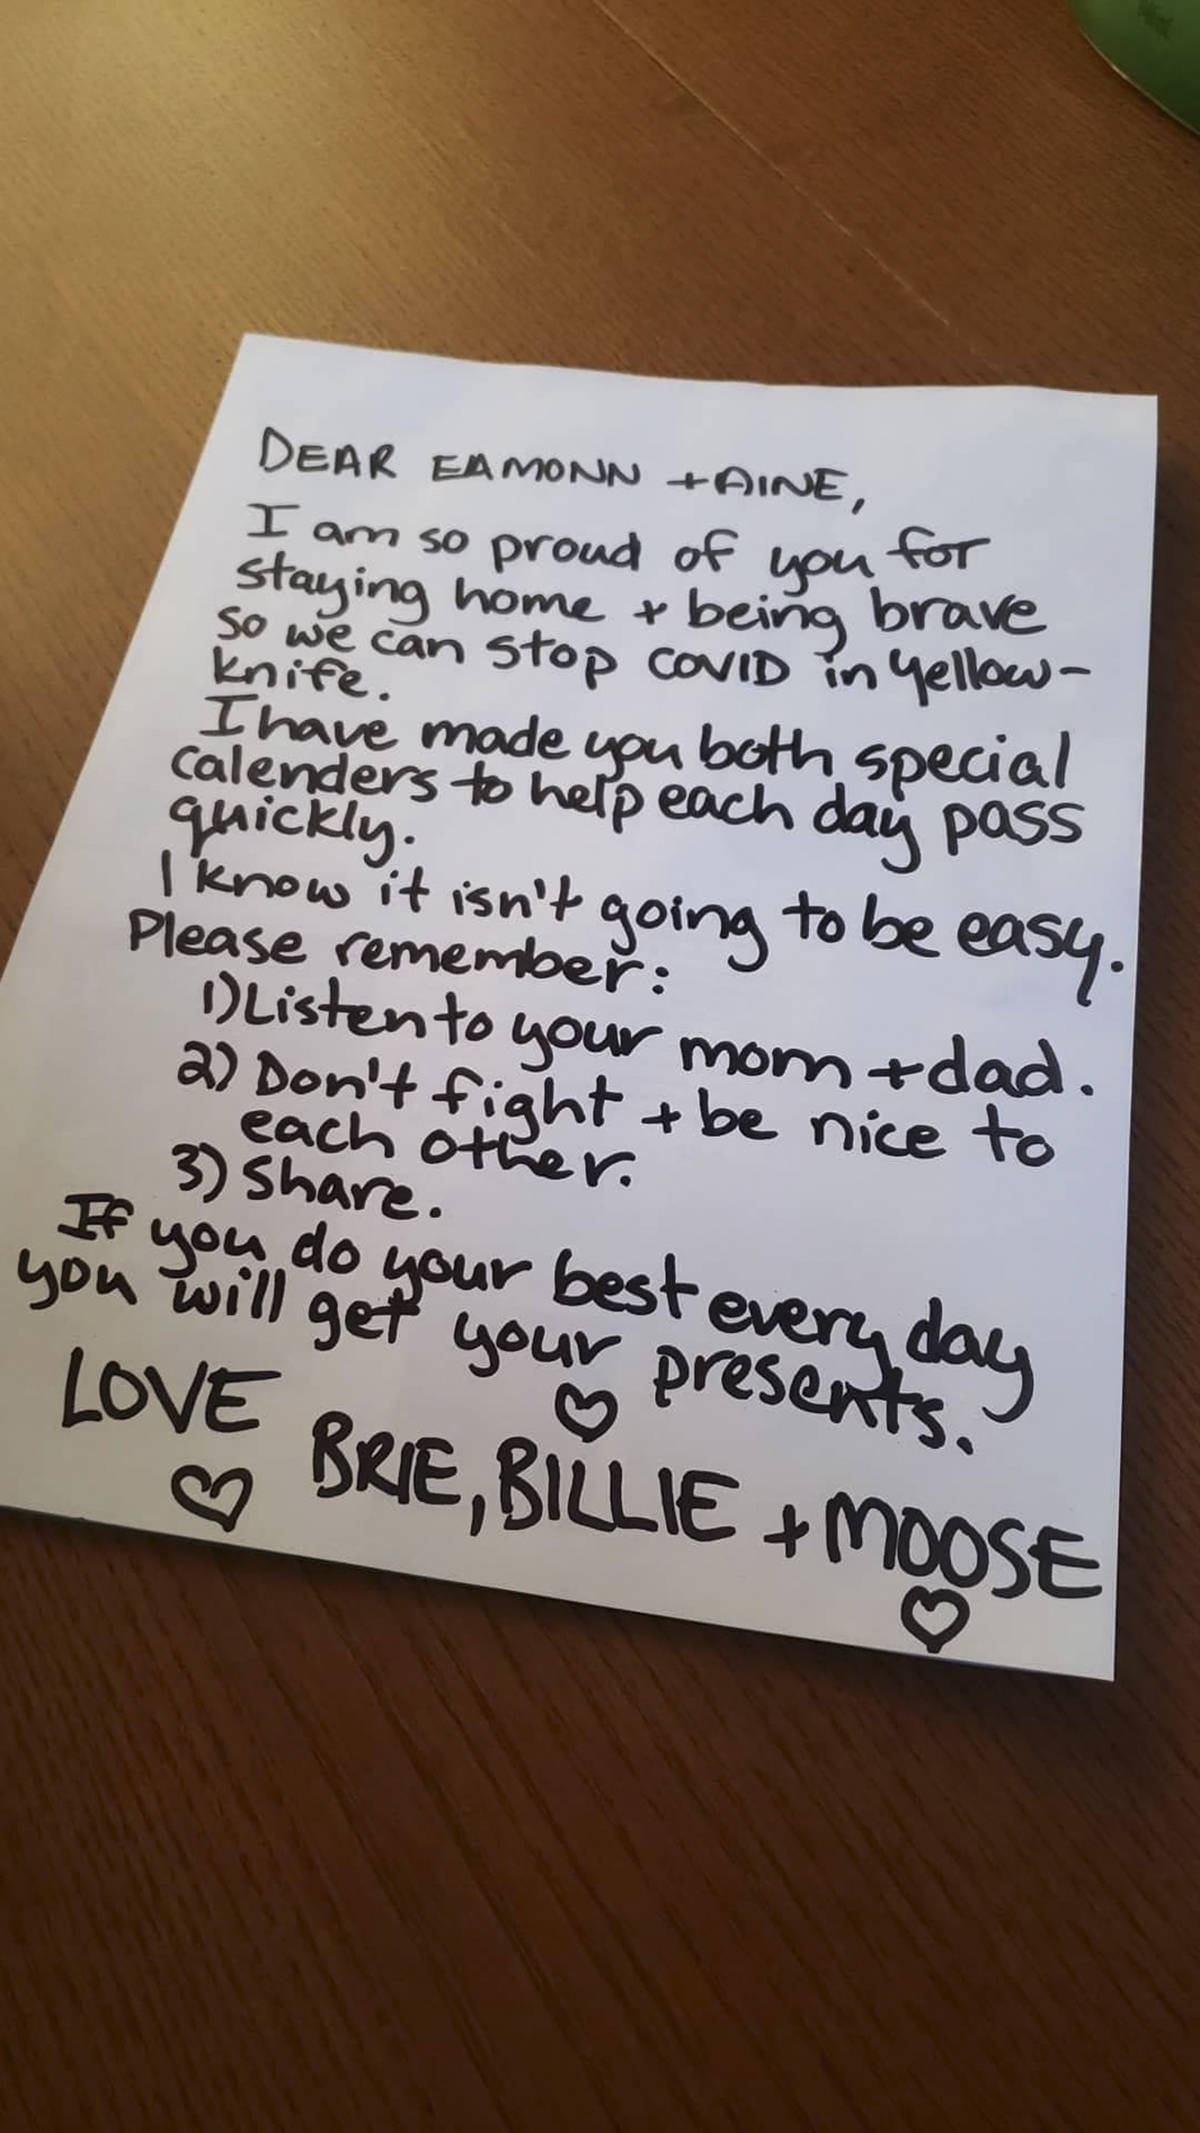 DEAR EAMONN + AINE,
I am so proud of you for
staying home + being brave
so we can stop COVID in Yellow-
knife.
I have made you both special
calenders to help each day pass
quickly.
I know it isn't going to be easy.
Please remember:
1) Listen to your mom + dad.
2) Don't fight + be nice to
each other.
3) Share.
If you do your best every day
you will get your presents.
LOVE
BRIE, BILLIE + MOOSE